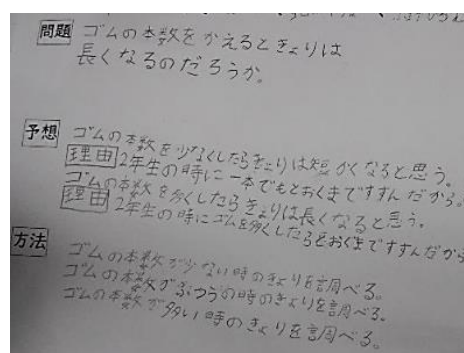 問題 ゴムの本数をかえるときょりは
長くなるのだろうか。
予想 ゴムの本数を少なくしたらきょりは短かくなると思う。
理由 2年生の時に一本でもとおくまですすんだから。
ゴムの本数を多くしたらきょりは長くなると思う。
理由 2年生の時にゴムを多くしたらとおくまですすんだから
方法 ゴムの本数が少ない時のきょりを調べる。
ゴムの本数がふつうの時のきょりを調べる。
ゴムの本数が多い時のきょりを調べる。